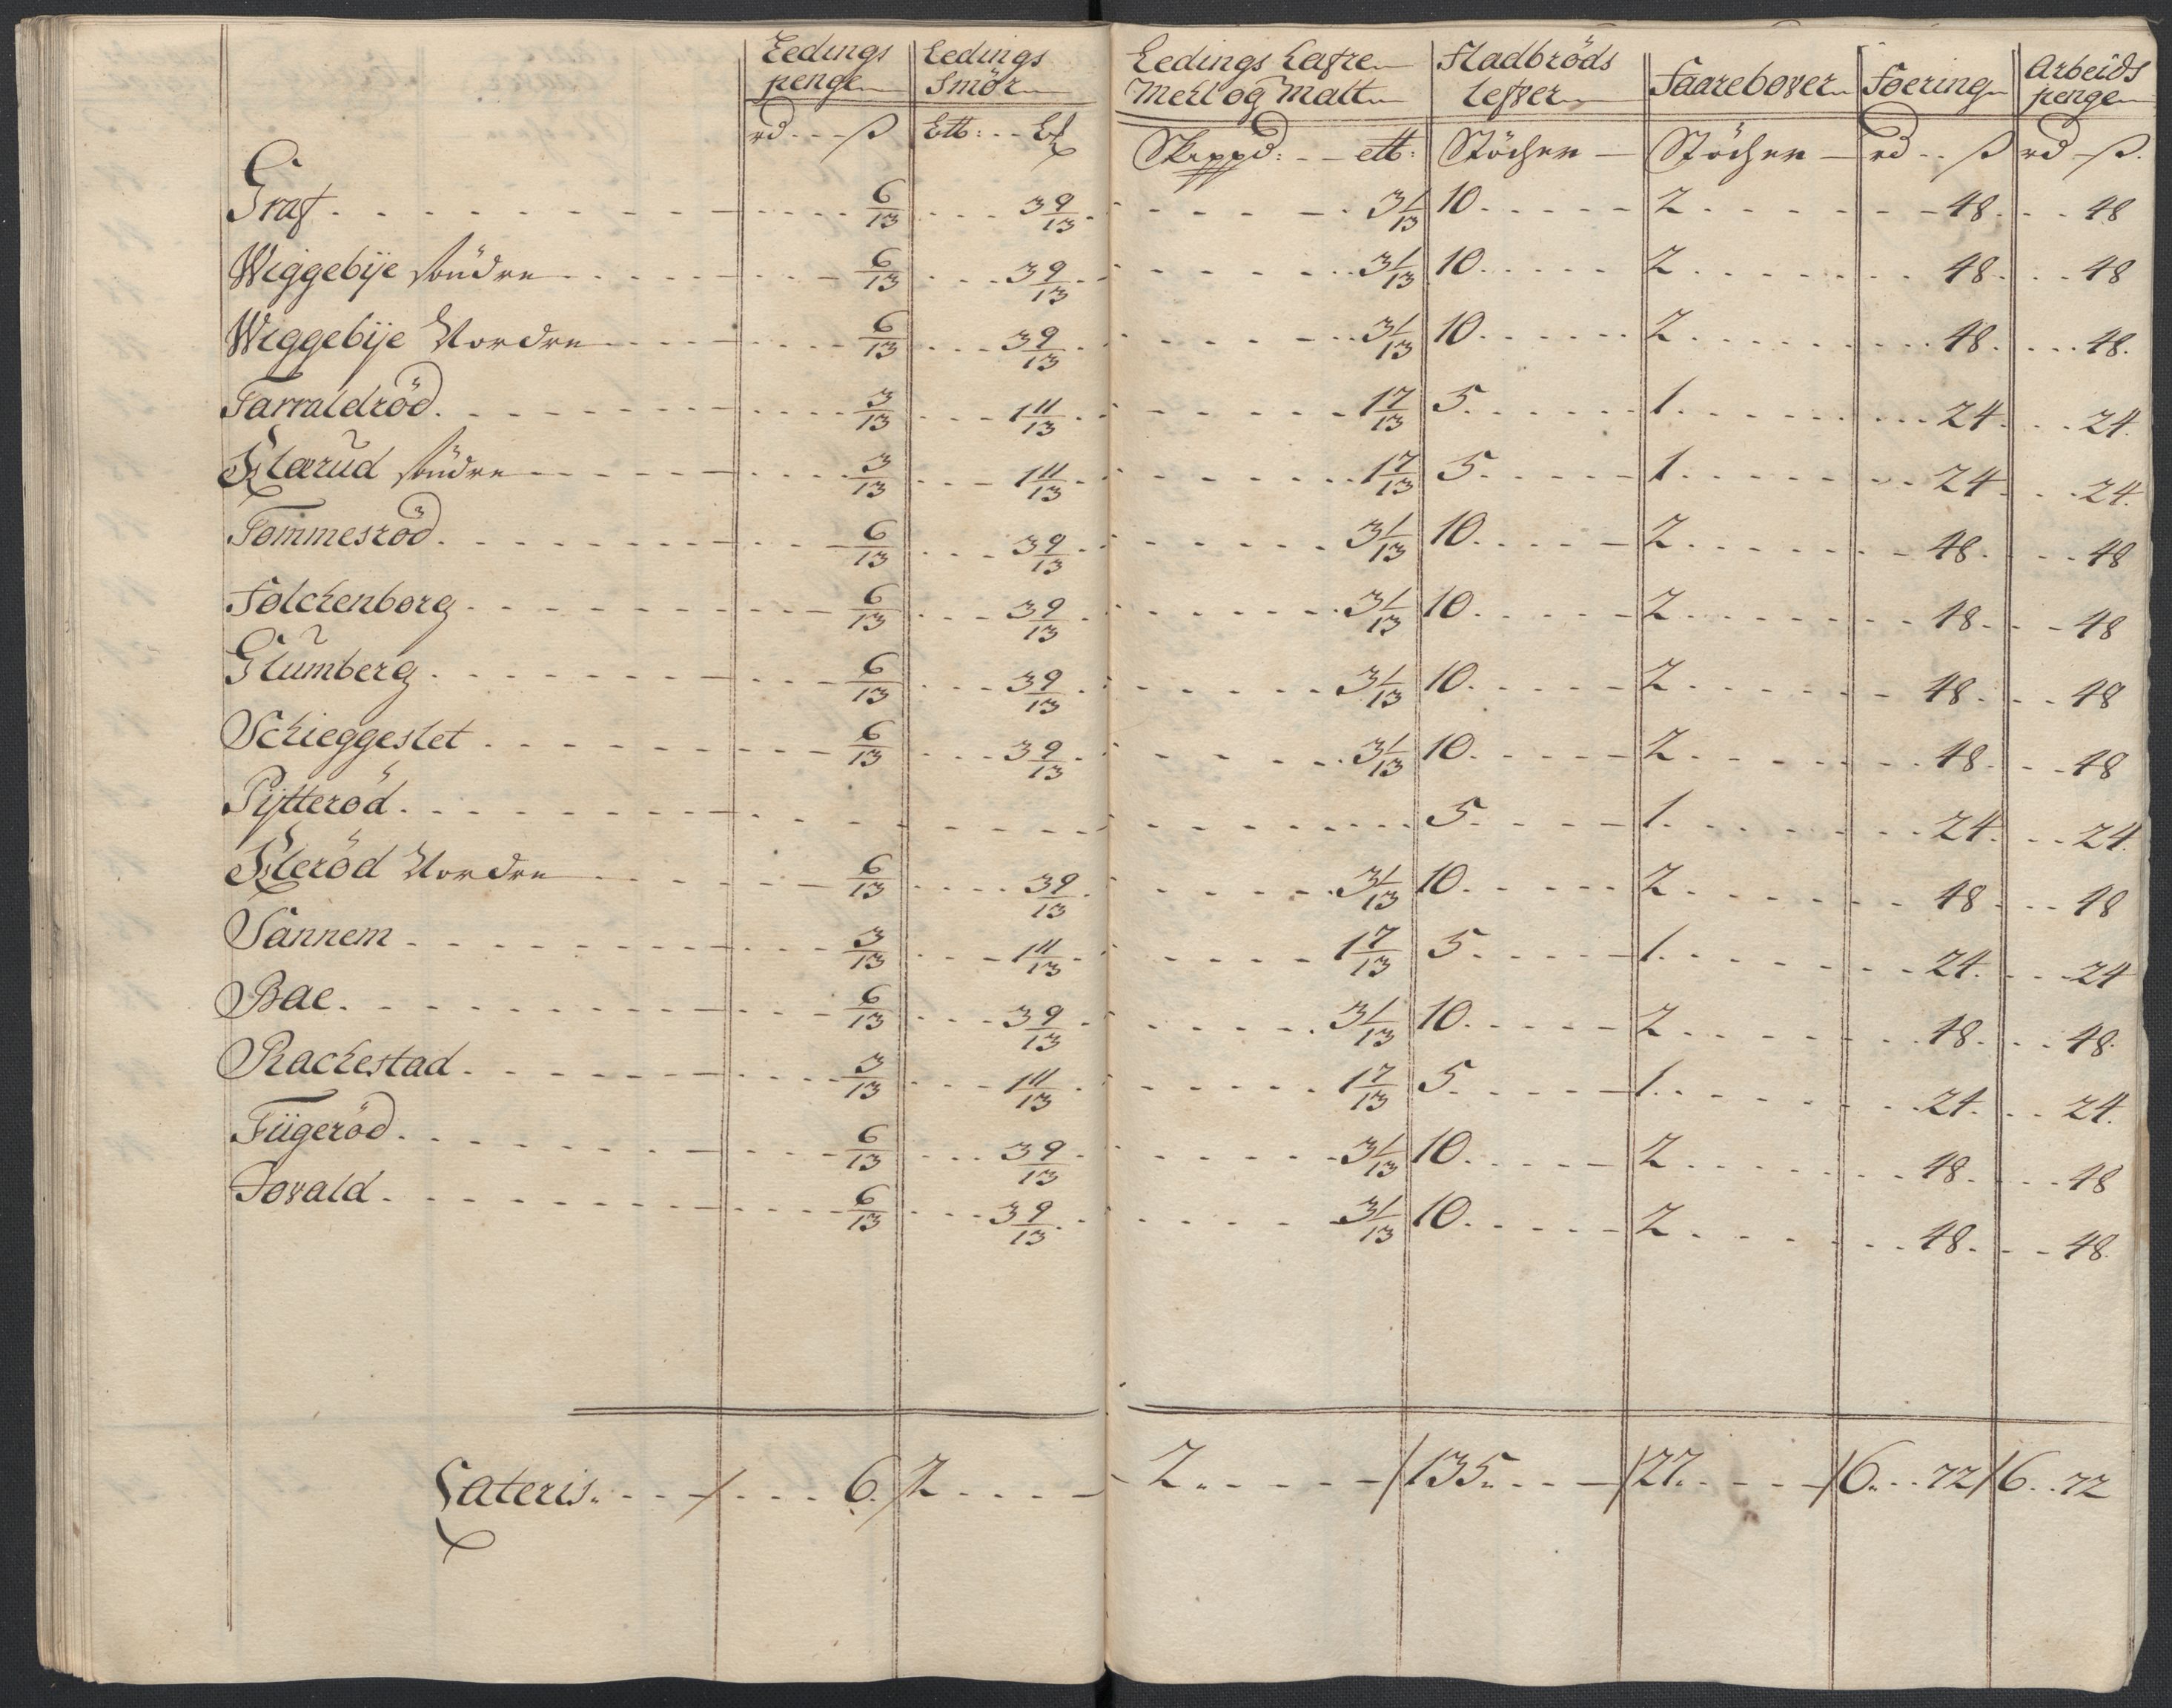 Ledings penge Ledings Smör Ledings Hafre Meel og Malt Fladbröds Lefver Faarebover Foering Arbeids penge
rd ß Skippd: Stöcher Stöcher rd ß rd ß
Graf 6/13 3 9/13 3 1/13 10 2 48 48
Wiggebÿe söndre 6/13 3 9/13 3 1/13 10 2 48 48
Wiggebÿe Nordre 6/13 3 9/13 3 1/13 10 2 48 48
Tarraldröd 3/13 1 11/13 1 7/13 5 1 24 24
Klærud söndre 3/13 1 11/13 1 7/13 5 1 24 24
Tommesröd 6/13 3 9/13 3 1/13 10 2 48 48
Folckenborg 6/13 3 9/13 3 1/13 10 2 48 48
Glumberg 6/13 3 9/13 3 1/13 10 2 48 48
Schieggestet 6/13 3 9/13 3 1/13 10 2 48 48
Pÿtteröd 5 1 24 24
Kleröd Nordre 6/13 3 9/13 3 1/13 10 2 48 48
Sannem 3/13 1 11/13 1 7/13 5 1 24 24
Bae 6/13 3 9/13 3 1/13 10 2 48 48
Rackestad 3/13 1 11/13 1 7/13 5 1 24 24
Fügeröd 6/13 3 9/13 3 1/13 10 2 48 48
Tovald 6/13 3 9/13 3 1/13 10 2 48 48
Lateris 6 2 2 135 27 6 72 6 72